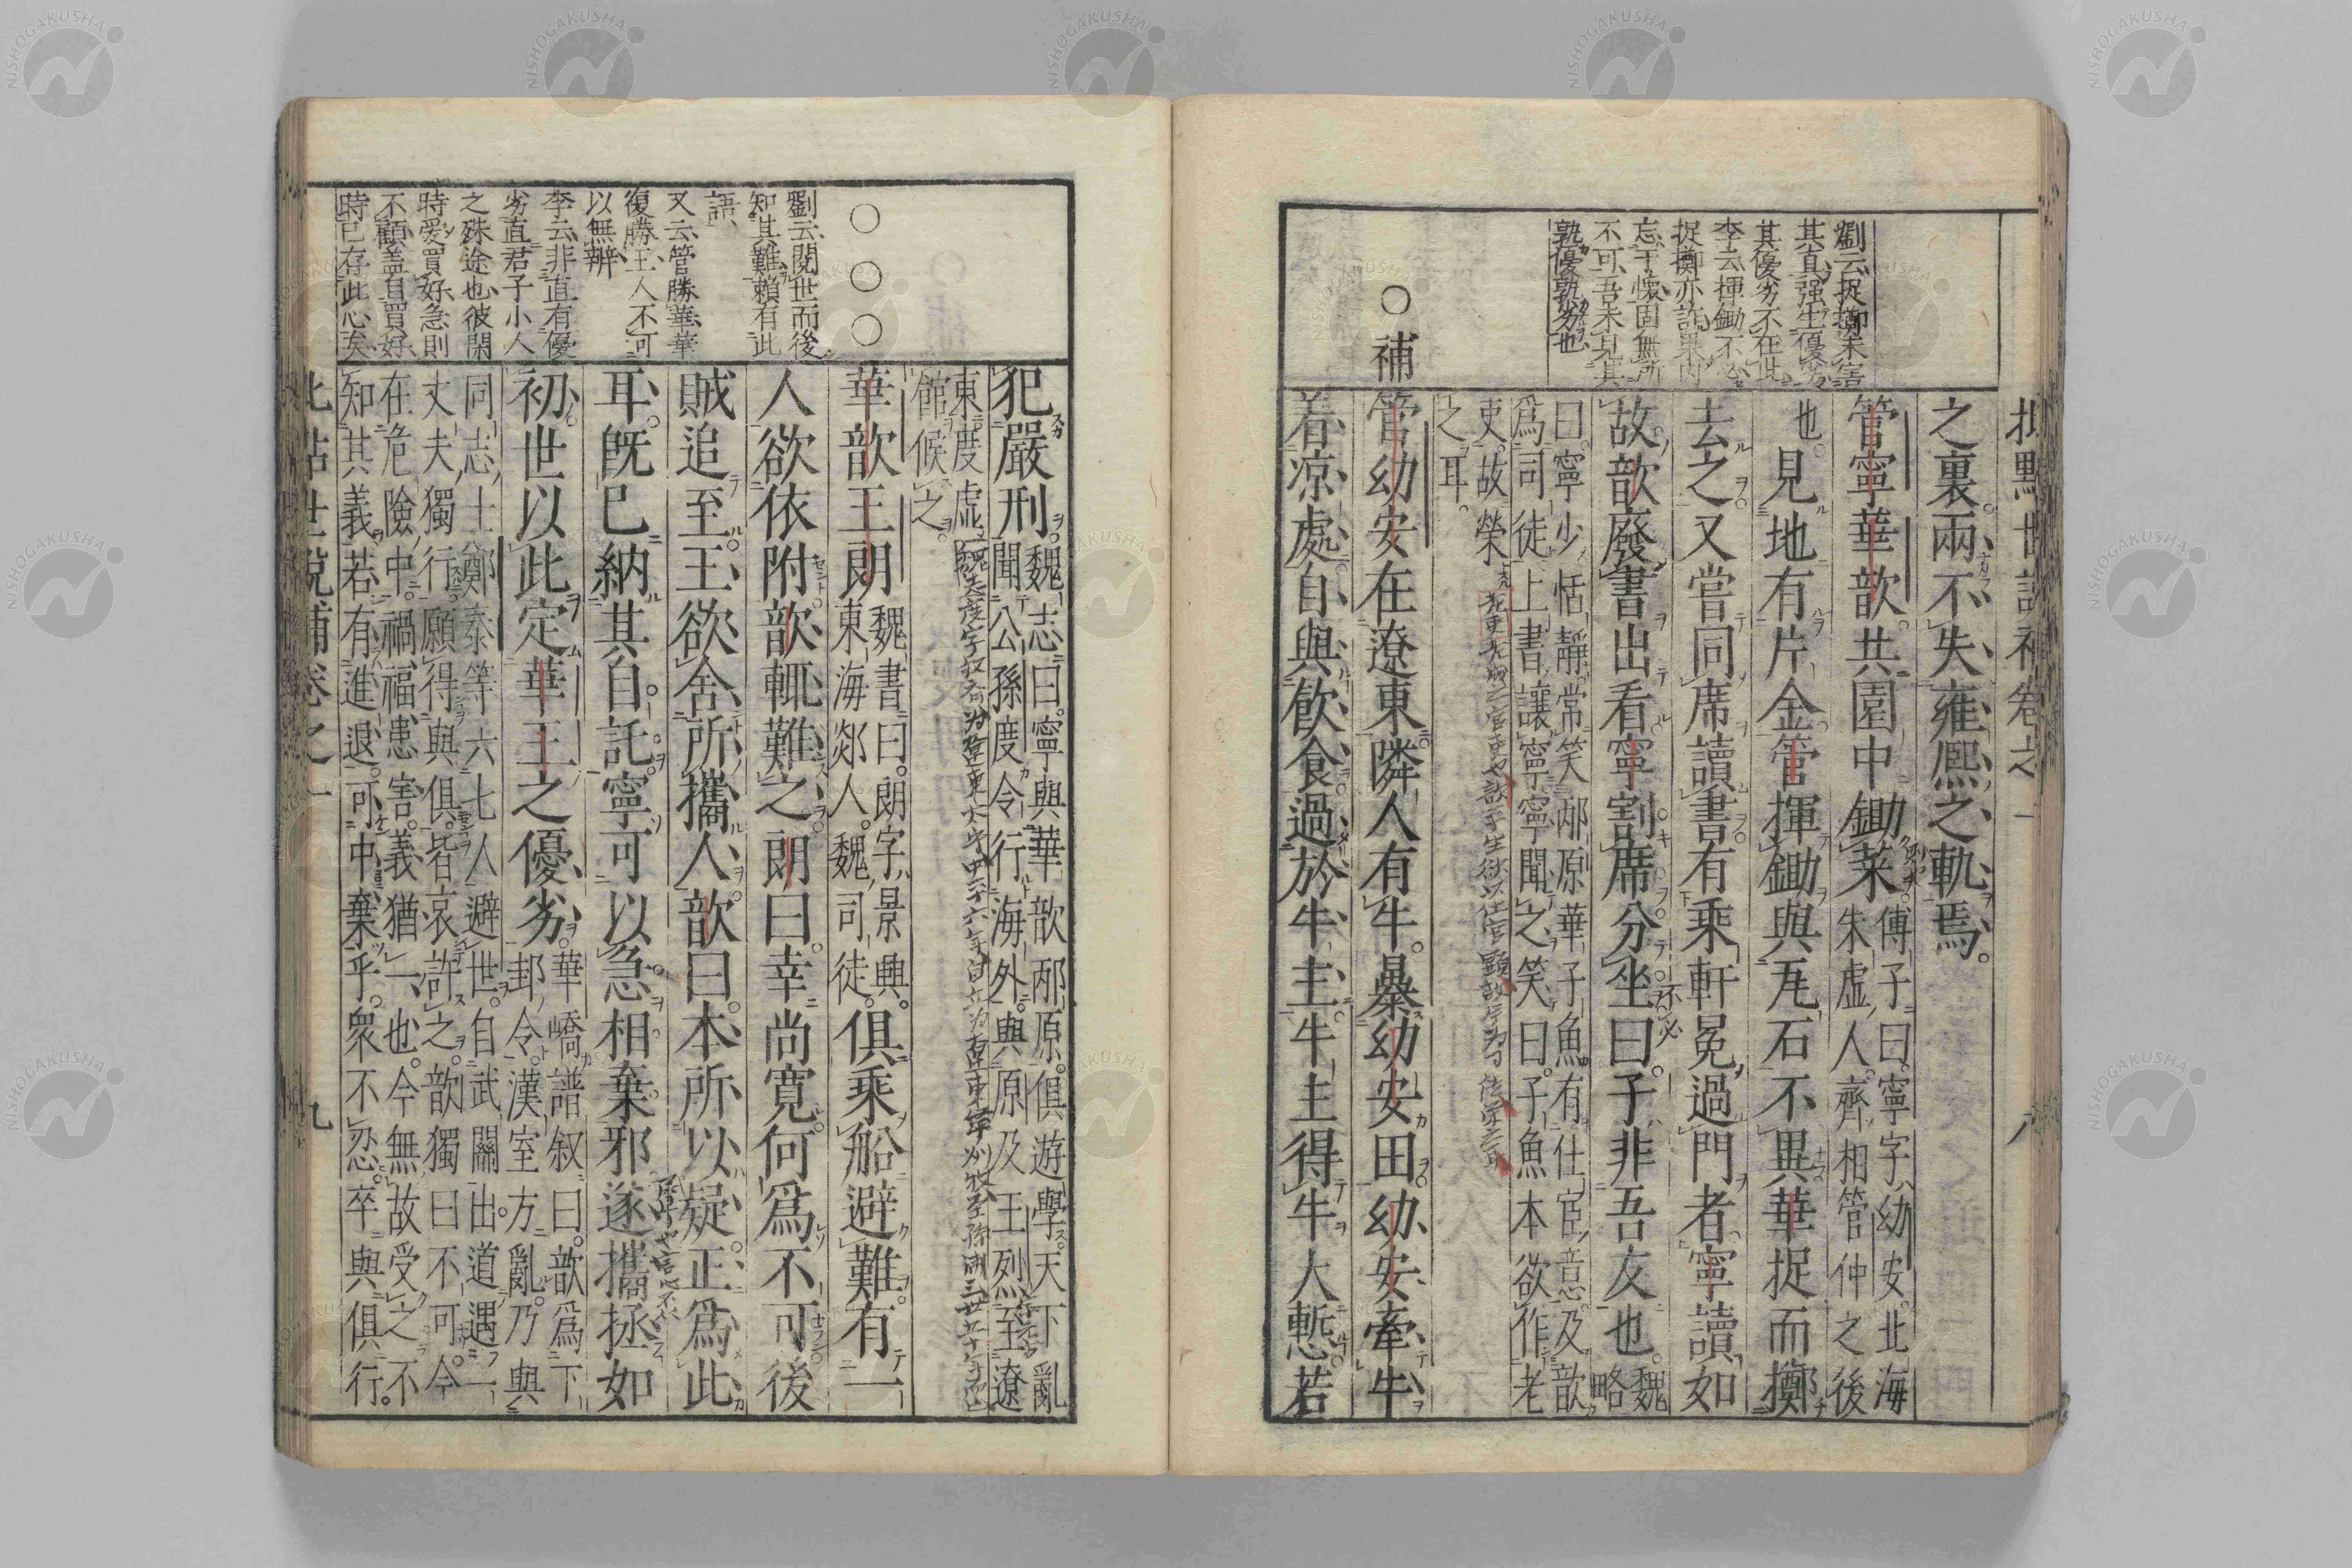 批點世說補卷之一
八
劉云捉擲未害
其真强生優劣
其優劣不在此
李云揮鋤不必
捉擲亦詐果内
忘于懷固無所
不可吾未見其
孰優孰劣也
之裏兩不失雍熈之軌焉。
管寧華歆共園中鋤菜傅子曰。寧字幼安。北海
朱虛人。齊相管仲之後
也。見地有片金管揮鋤與瓦石不異華捉而擲
去之又嘗同席讀書有乘軒冕過門者寧讀如
故歆廢書出看寧割席分坐曰子非吾友也。魏
略
曰。寧少恬靜。常笑邴原華子魚有仕宦意。及歆
爲司徒上書讓寧寧聞之笑曰。子魚本欲作老
吏。故榮
之耳。
○補
管幼安在遼東隣人有牛。暴幼安田幼安牽牛
着凉處自與飲食過於牛主牛主得牛大慙若
○○○
劉云閱世而後
知其難賴有此
語
又云管勝華華
復勝王人不可
以無辨
李云非直有優
劣直君子小人
之殊途也彼閑
時愛買好急則
不顧盖自買好
時已存此心矣
犯嚴刑。魏志曰。寧與華歆邴原俱遊學。天下亂
聞公孫度令行海外。與原及王烈至遼
東。度虛
館候之。
華歆王朗魏書曰。朗字景興。
東海郯人。魏司徒。俱乘船避難有一
人欲依附歆輒難之朗曰幸尚寛何爲不可後
賊追至王欲舍所攜人歆曰本所以疑正爲此
耳既已納其自託寧可以急相棄邪遂攜拯如
初世以此定華王之優劣。華嶠譜叙曰。歆爲下
邽令。漢室方亂。乃與
同志士鄭泰等六七人避世。自武關出。道遇一
丈夫獨行。願得與俱。皆哀許之。歆獨曰不可。今
在危險中。禍福患害。義猶一也。今無故受之。不
知其義。若有進退。可中棄乎。衆不忍。卒與俱行。
批點世說補卷之一
九